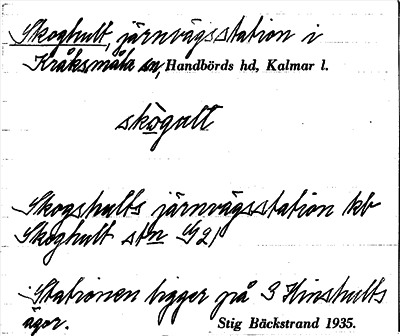 Skoghult, järnvägsstation i
Kråksmåla sn, Handbörds hd, Kalmar l.
skògult
Skogshults järnvägsstation kb
Skoghult stn G21
Stationen ligger på 3 Hinshults
ägor. Stig Bäckstrand 1935.